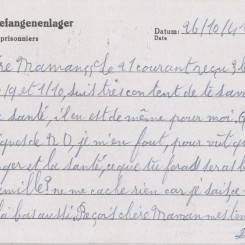 efangenenlager
prisonniers
Datum: 26/10/4
Date
ère Maman, Le 21 courant reçu
/9 et 1/10, suis très content de te savoi
santé, il en est de même pour moi.
de N D, je m'en fout, pour vût qu
nger et la santé, ce que tu feras sera
mille? ne me cache rien car je sais ce
à bas aussi. Reçois chère Maman mes ten